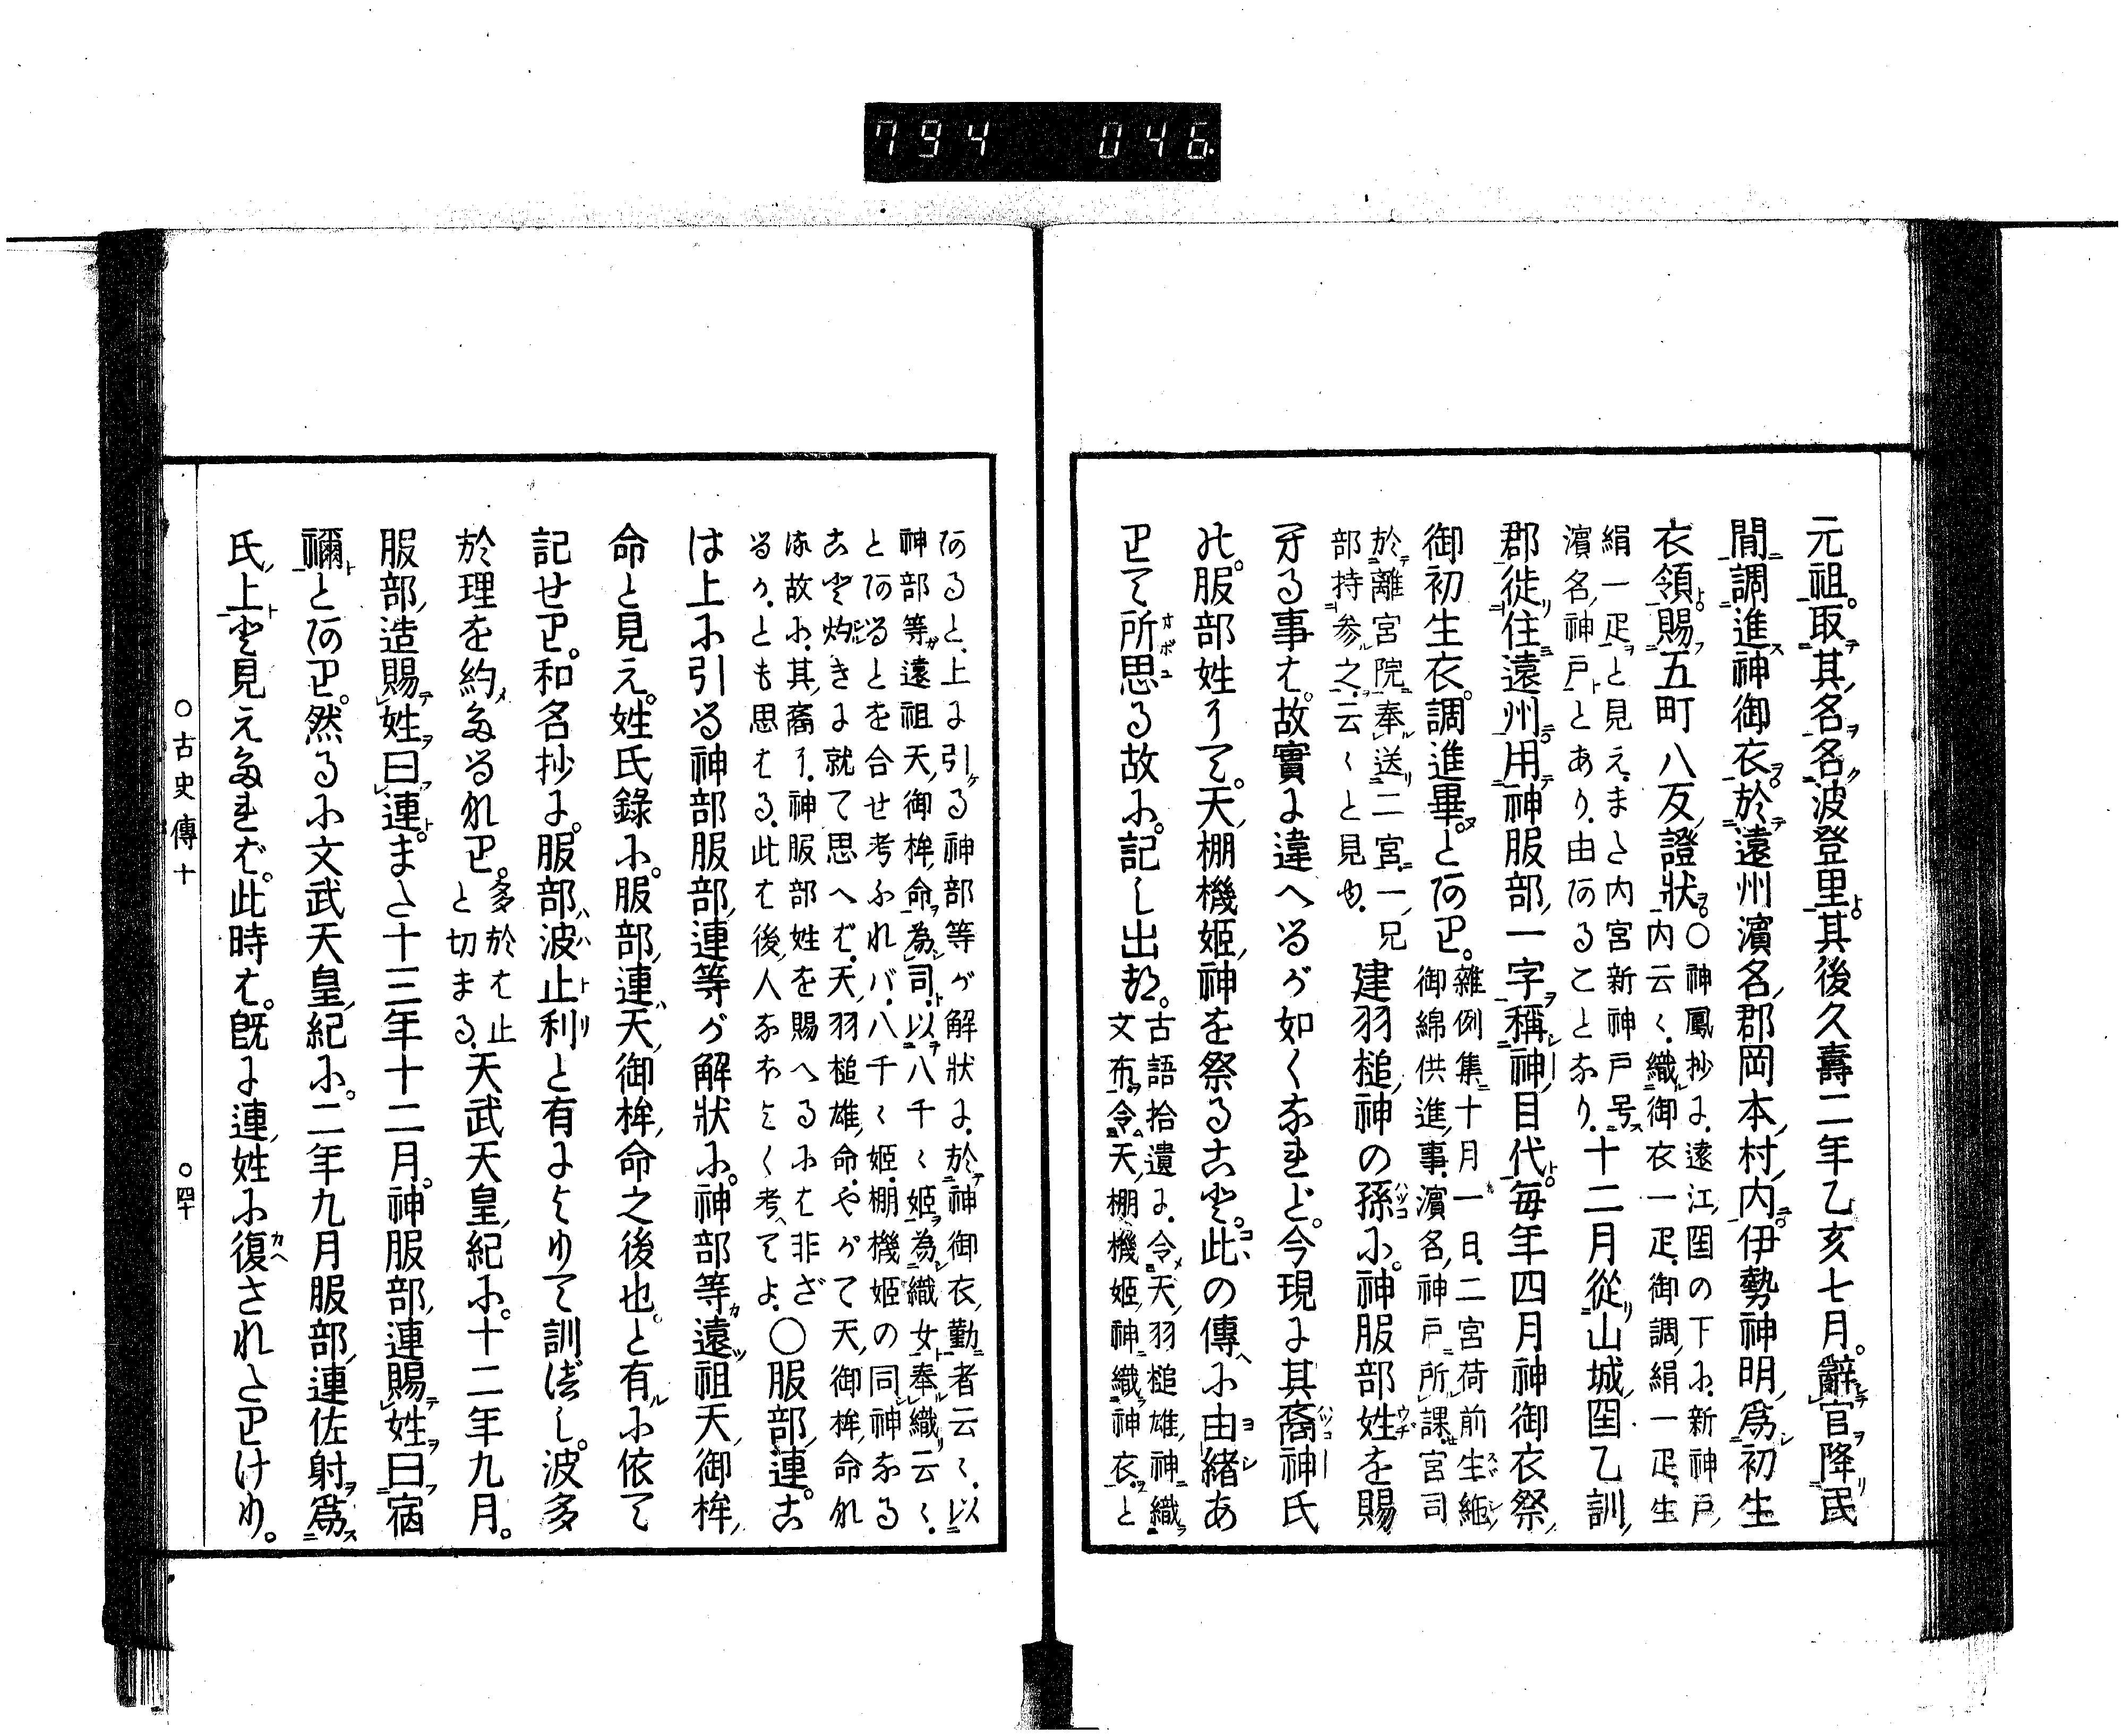 794 046
元祖。取其名名波登里。其後久壽二年乙亥七月。辭官降民
間調進神御衣。於遠州濱名郡岡本村内伊勢神明爲初生
衣領賜五町八反證狀。○神鳳抄に。遠江国の下に。新神戸
内云々。織御衣一疋。御調絹一疋。生
絹一疋と見え。また内宮新神戸号
濱名神戸とあり。由あることなり。十二月從山城国乙訓
郡徙住遠州用神服部一字稱神目代。毎年四月神御衣祭
御初生衣。調進畢。とあり。雜例集十月一日。二宮荷前生絁
御綿供進事。濱名神戸所課。宮司
於離宮院奉送二宮。一兄
部持参之。云々と見也。建羽槌神の孫に。神服部姓を賜
へる事は。故實に違へるが如くなれど。今現に其裔神氏
の。服部姓にて。天棚機姫神を祭ること。此の傳に由緒あ
りて所思る故に。記し出も。古語拾遺に。令天羽槌雄神織
文布。令天棚機姫神織神衣。と
あると。上に引る神部等が解狀に。於神御衣勤者云々。以
神部等遠祖天御桙命爲司。以八千々姫爲織女奉織云々。
とあるとを合せ考ふれバ。八千々姫。棚機姫の同神なる
こと灼きに就て思へば。天羽槌雄命。やがて天御桙命な
る故に。其裔に。神服部姓を賜へるには非ざ
るか。とも思はる。此は後人なほよく考へてよ。○服部連。こ
は上に引る神部服部連等が解狀に。神部等遠祖天御桙
命と見え。姓氏錄に。服部連天御桙命之後也。と有に依て
記せり。和名抄に。服部波止利と有によりて訓べし。波多
於理を約めたるなり。多於は止
と切まる。天武天皇紀に。十二年九月。
服部造賜姓曰連。また十三年十二月。神服部連賜姓曰宿
禰とあり。然るに文武天皇紀に。二年九月服部連佐射爲
氏上と見えたれば。此時は。既に連姓に復されたりけり。
○古史傳十 ○四十